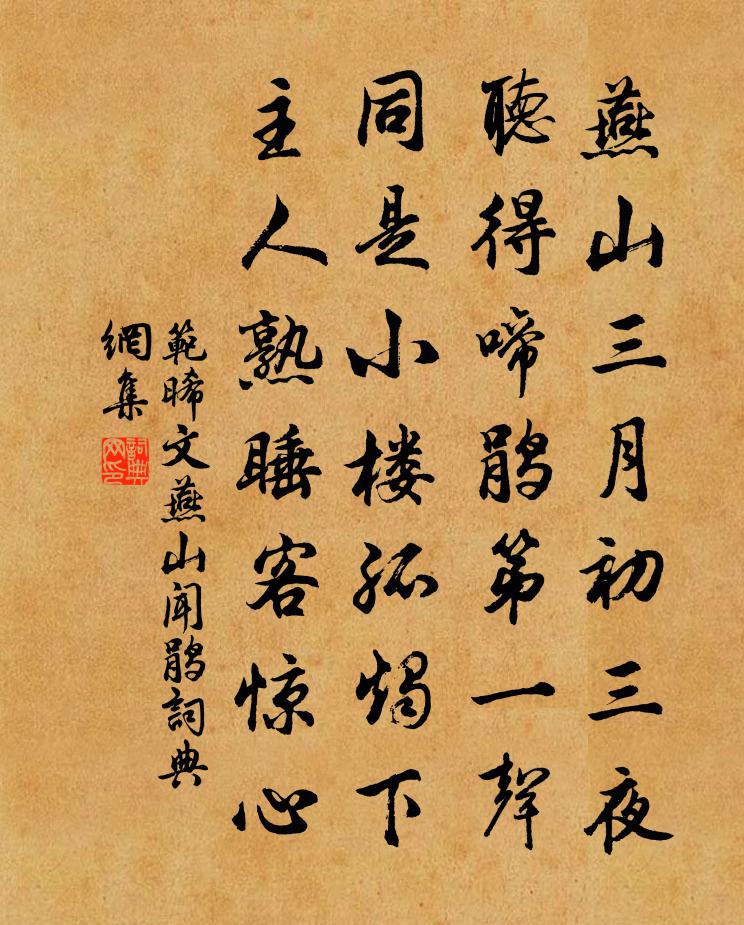 燕山三月初三夜
聽得啼鵑第一聲
同是小樓孤燭下
主人熟睡客惊心
範晞文燕山闻鵑詞典
網集
詞典网印